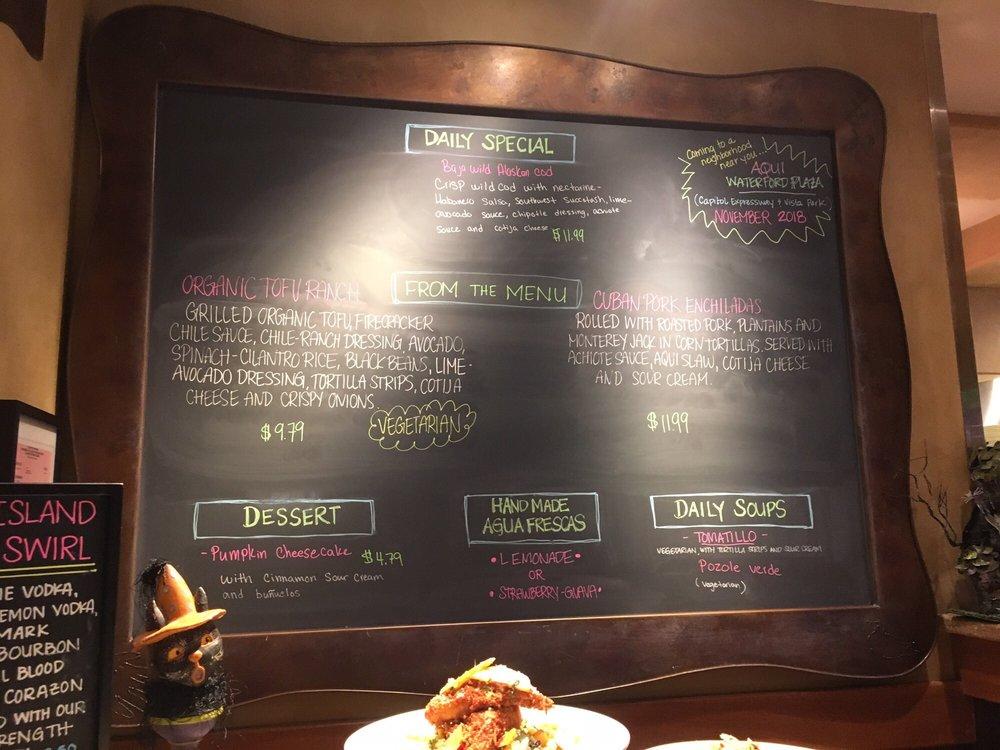 DAILY SPECIAL
Baja Wild Alaskan Cod
Crisp wild Cod with nectarine-
Habanero Salsa, Southwest Succotash, lime-
avocado sauce, chipotle dressing, achiote
sauce and cotija cheese $11.99
Coming to a
neighborhood
near you...
AQUI
WATERFORD PLAZA
(Capitol Expressway + Vista Park)
NOVEMBER 2018
FROM THE MENU
ORGANIC TOFU RANCH
GRILLED ORGANIC TOFU, FIRECRACKER
CHILE SAUCE, CHILE-RANCH DRESSING, AVOCADO,
SPINACH-CILANTRO RICE, BLACK BEANS, LIME-
AVOCADO DRESSING, TORTILLA STRIPS, COTIJA
CHEESE AND CRISPY ONIONS.
$9.79
VEGETARIAN
CUBAN PORK ENCHILADAS
ROLLED WITH ROASTED PORK, PLANTAINS AND
MONTEREY JACK IN CORN TORTILLAS. SERVED WITH
ACHIOTE SAUCE, AQUI SLAW, COTIJA CHEESE
AND SOUR CREAM.
$11.99
DESSERT
-Pumpkin Cheesecake $4.79
with Cinnamon Sour Cream
and buñuelos
HAND MADE
AGUA FRESCAS
• LEMONADE •
OR
• STRAWBERRY-GUAVA •
DAILY SOUPS
- TOMATILLO -
VEGETARIAN, WITH TORTILLA STRIPS AND SOUR CREAM
Pozole verde
(vegetarian)
ISLAND
SWIRL
VODKA,
LEMON VODKA,
MARK
BOURBON!
BLOOD
CORAZON
WITH OUR